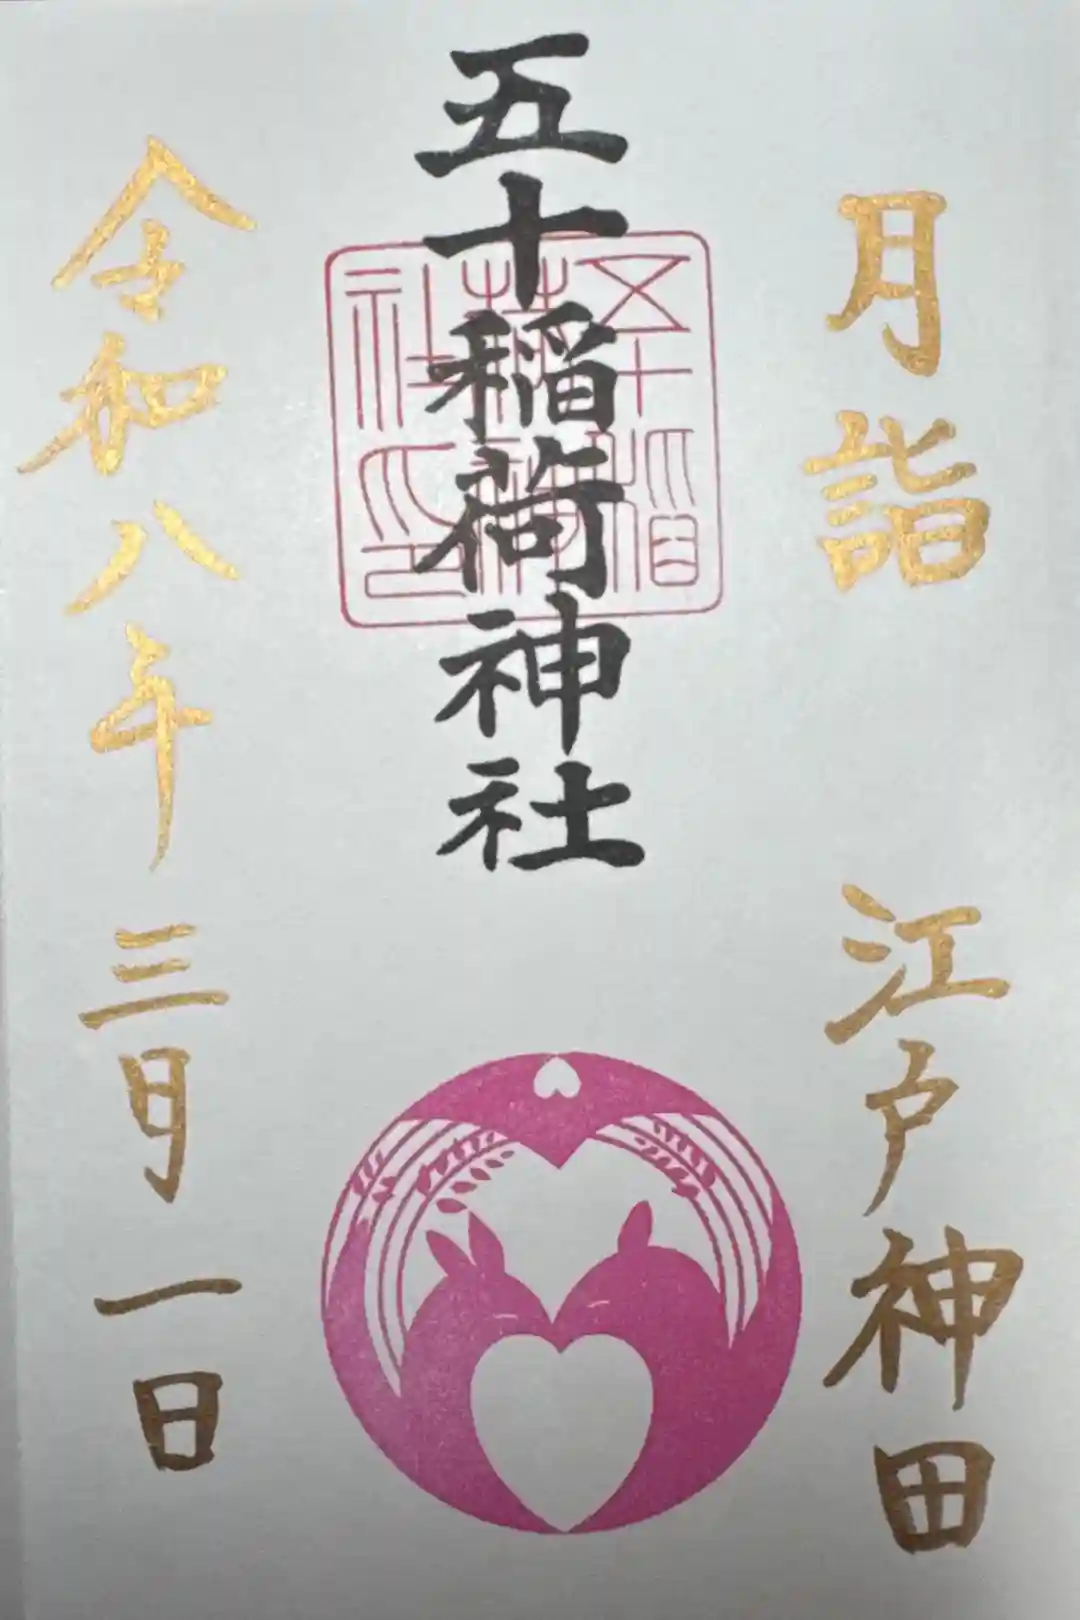 月詣 江戸神田
五十稲荷神社
五十稲荷神社印
令和八年三月一日